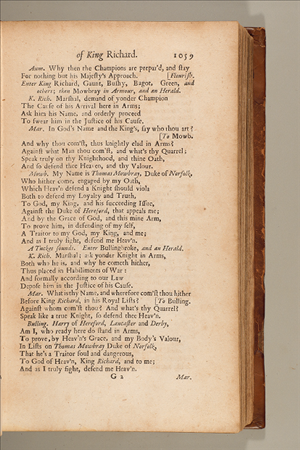 of King Richard. 1059
Aum. Why then the Champions are perpar'd, and ſtay
For nothing but his Majeſty's Approach. [Flouriſh.
Enter King Richard, Gaunt, Buſhy, Bagot, Green, and
others; then Mowbray in Armour, and an Herald.
K. Rich. Marſhal, demand of yonder Champion
The Cauſe of his Arrival here in Arms;
Ask him his Name, and orderly proceed
To ſwear him in the Juſtice of his Cauſe.
Mar. In God's Name and the King's, ſay who thou art?
[To Mowb.
And why thou com'ſt, thus knightly clad in Arms?
Againſt what Man thou com'ſt, and what's thy Quarrel;
Speak truly on thy Knighthood, and thine Oath,
And ſo defend thee Heaven, and thy Valour.
Mowb. My Name is Thomas Mowbray, Duke of Norfolk,
Who hither come, engaged by my Oath,
Which Heav'n defend a Knight ſhould viola
Both to defend my Loyalty and Truth,
To God, my King, and his ſucceeding Iſſue,
Againſt the Duke of Hereford, that appeals me;
And by the Grace of God, and this mine Arm,
To prove him, in defending of my ſelf,
A Traitor to my God, my King, and me;
And as I truly fight, defend me Heav'n.
A Tucket ſounds. Enter Bullingbroke, and an Herald.
K. Rich. Marſhal; ask yonder Knight in Arms,
Both who he is, and why he cometh hither,
Thus placed in Habiliments of War:
And formally according to our Law
Depoſe him in the Juſtice of his Cauſe.
Mar. What is thy Name, and wherefore com'ſt thou hither
Before King Richard, in his Royal Liſts? [To Bulling.
Againſt whom com'ſt thou? And what's thy Quarrel?
Speak like a true Knight, ſo defend thee Heav'n.
Bulling. Harry of Hereford, Lancaſter and Derby,
Am I, who ready here do ſtand in Arms,
To prove, by Heav'n's Grace, and my Body's Valour,
In Liſts on Thomas Mowbray Duke of Norfolk,
That he's a Traitor foul and dangerous,
To God of Heav'n, King Richard, and to me;
And as I truly fight, defend me Heav'n.
G 2 Mar.